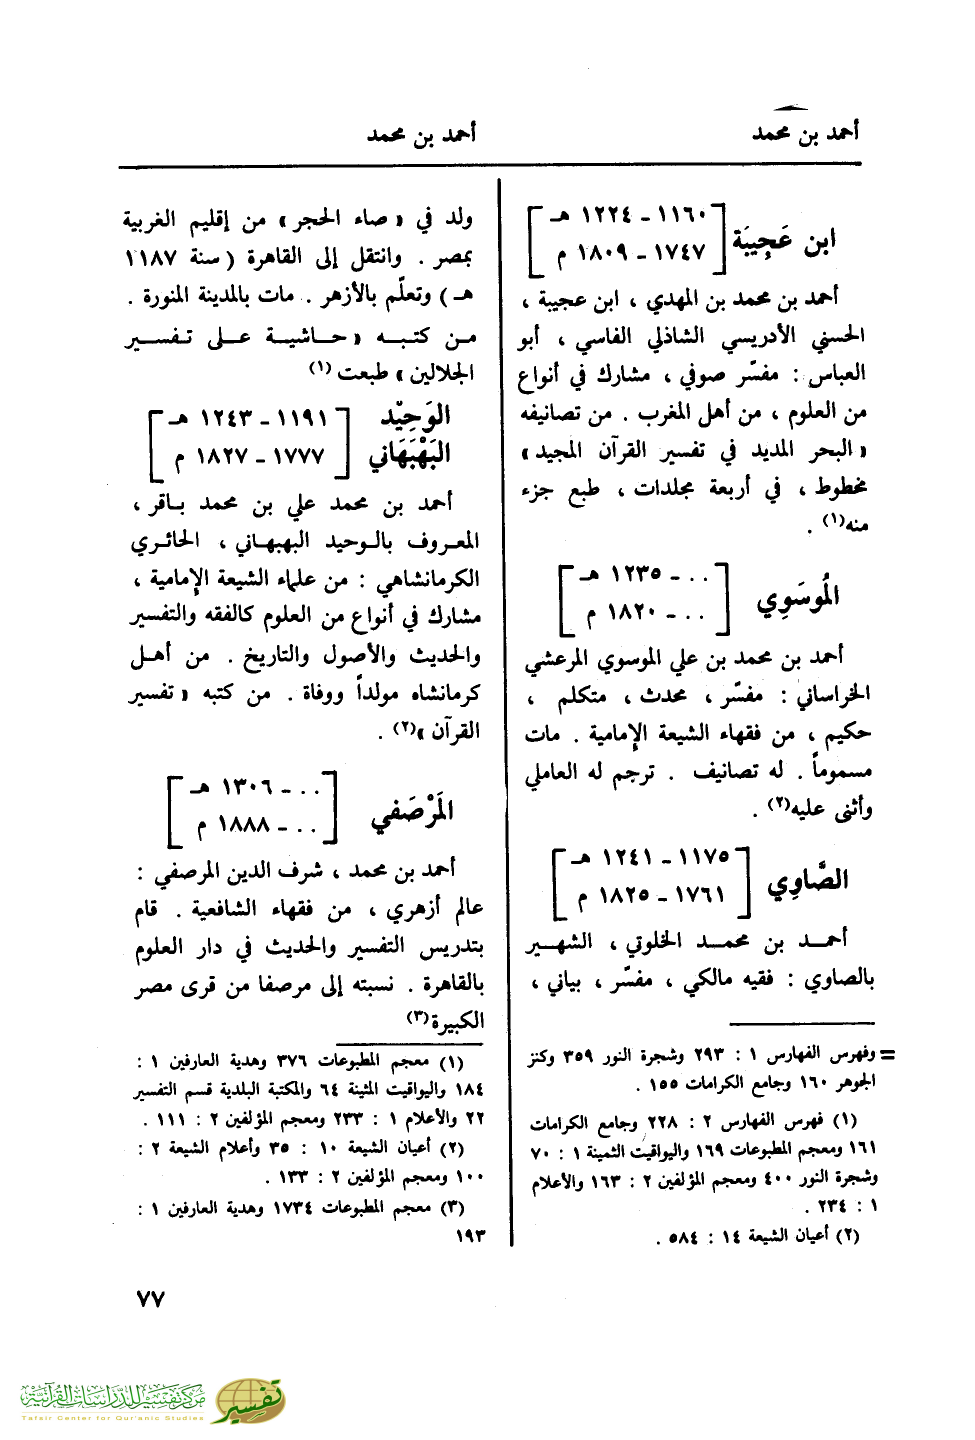 أحمد بن محمد
أحمد بن محمد
ابن عَجِيبَة
١١٦٠ - ١٢٢٤ هـ
١٧٤٧ - ١٨٠٩ م
أحمد بن محمد بن المهدي ، ابن عجيبة ،
الحسني الأدريسي الشاذلي الفاسي ، أبو
العباس : مفسّر صوفي ، مشارك في أنواع
من العلوم ، من أهل المغرب . من تصانيفه
« البحر المديد في تفسير القرآن المجيد »
مخطوط ، في أربعة مجلدات ، طبع جزء
منه(١) .
المُوسَوِي
. . . - ١٢٣٥ هـ
. . . - ١٨٢٠ م
أحمد بن محمد بن علي الموسوي المرعشي
الخراساني : مفسّر ، محدث ، متكلم ،
حكيم ، من فقهاء الشيعة الإمامية . مات
مسموماً . له تصانيف . ترجم له العاملي
وأثنى عليه(٢) .
الصَّاوِي
١١٧٥ - ١٢٤١ هـ
١٧٦١ - ١٨٢٥ م
أحمـد بن محمـد الخلوتي ، الشهـير
بالصاوي : فقيه مالكي ، مفسّر ، بياني ،
= وفهرس الفهارس ١ : ٢٩٣ وشجرة النور ٣٥٩ وكنز
الجوهر ١٦٠ وجامع الكرامات ١٥٥ .
(١) فهرس الفهارس ٢ : ٢٢٨ وجامع الكرامات
١٦١ ومعجم المطبوعات ١٦٩ واليواقيت الثمينة ١ : ٧٠
وشجرة النور ٤٠٠ ومعجم المؤلفين ٢ : ١٦٣ والأعلام
١ : ٢٣٤ .
(٢) أعيان الشيعة ١٤ : ٥٨٤ .
ولد في « صاء الحجر » من إقليم الغربية
بمصر . وانتقل إلى القاهرة ( سنة ١١٨٧
هـ ) وتعلّم بالأزهر . مات بالمدينة المنورة .
من كتبـه « حـاشيـة عـلى تـفسـير
الجلالين » طبعت(١)
الوَحِيْد
البَهْبَهَاني
١١٩١ - ١٢٤٣ هـ
١٧٧٧ - ١٨٢٧ م
أحمد بن محمد علي بن محمد بـاقر ،
المعـروف بالـوحيد البهبهـاني ، الحائـري
الكرمانشاهي : من علماء الشيعة الإمامية ،
مشارك في أنواع من العلوم كالفقه والتفسير
والحديث والأصول والتاريخ . من أهـل
كرمانشاه مولداً ووفاة . من كتبه « تفسير
القرآن »(٢) .
المَرْصَفي
. . . - ١٣٠٦ هـ
. . . - ١٨٨٨ م
أحمد بن محمد ، شرف الدين المرصفي :
عالم أزهري ، من فقهاء الشافعية . قام
بتدريس التفسير والحديث في دار العلوم
بالقاهرة . نسبته إلى مرصفا من قرى مصر
الكبيرة(٣)
(١) معجم المطبوعات ٣٧٦ وهدية العارفين ١ :
١٨٤ واليواقيت المثينة ٦٤ والمكتبة البلدية قسم التفسير
٢٢ والأعلام ١ : ٢٣٣ ومعجم المؤلفين ٢ : ١١١ .
(٢) أعيان الشيعة ١٠ : ٣٥ وأعلام الشيعة ٢ :
١٠٠ ومعجم المؤلفين ٢ : ١٣٣ .
(٣) معجم المطبوعات ١٧٣٤ وهدية العارفين ١ :
١٩٣
٧٧
مركز تفسير للدراسات القرآنية
Tafsir Center for Qur'anic Studies
تفسير